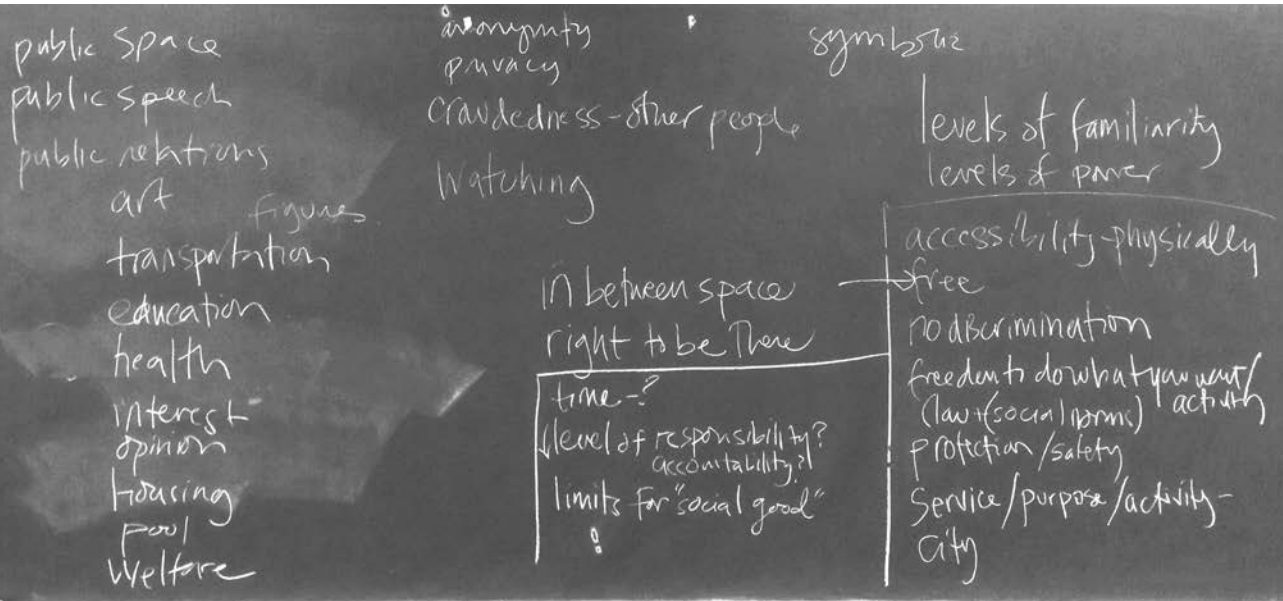 public space
public speech
public relations
art
figures
transportation
education
health
interest
opinion
housing
pool
welfare
anonymity
privacy
crowdedness - other people
watching
in between space
right to be there
time - ?
level of responsibility?
accountability?
limits for "social good"
symbolic
levels of familiarity
levels of power
accessibility - physically
free
no discrimination
freedom to do what you want /
activity
(law + (social norms)
protection / safety
service / purpose / activity -
city